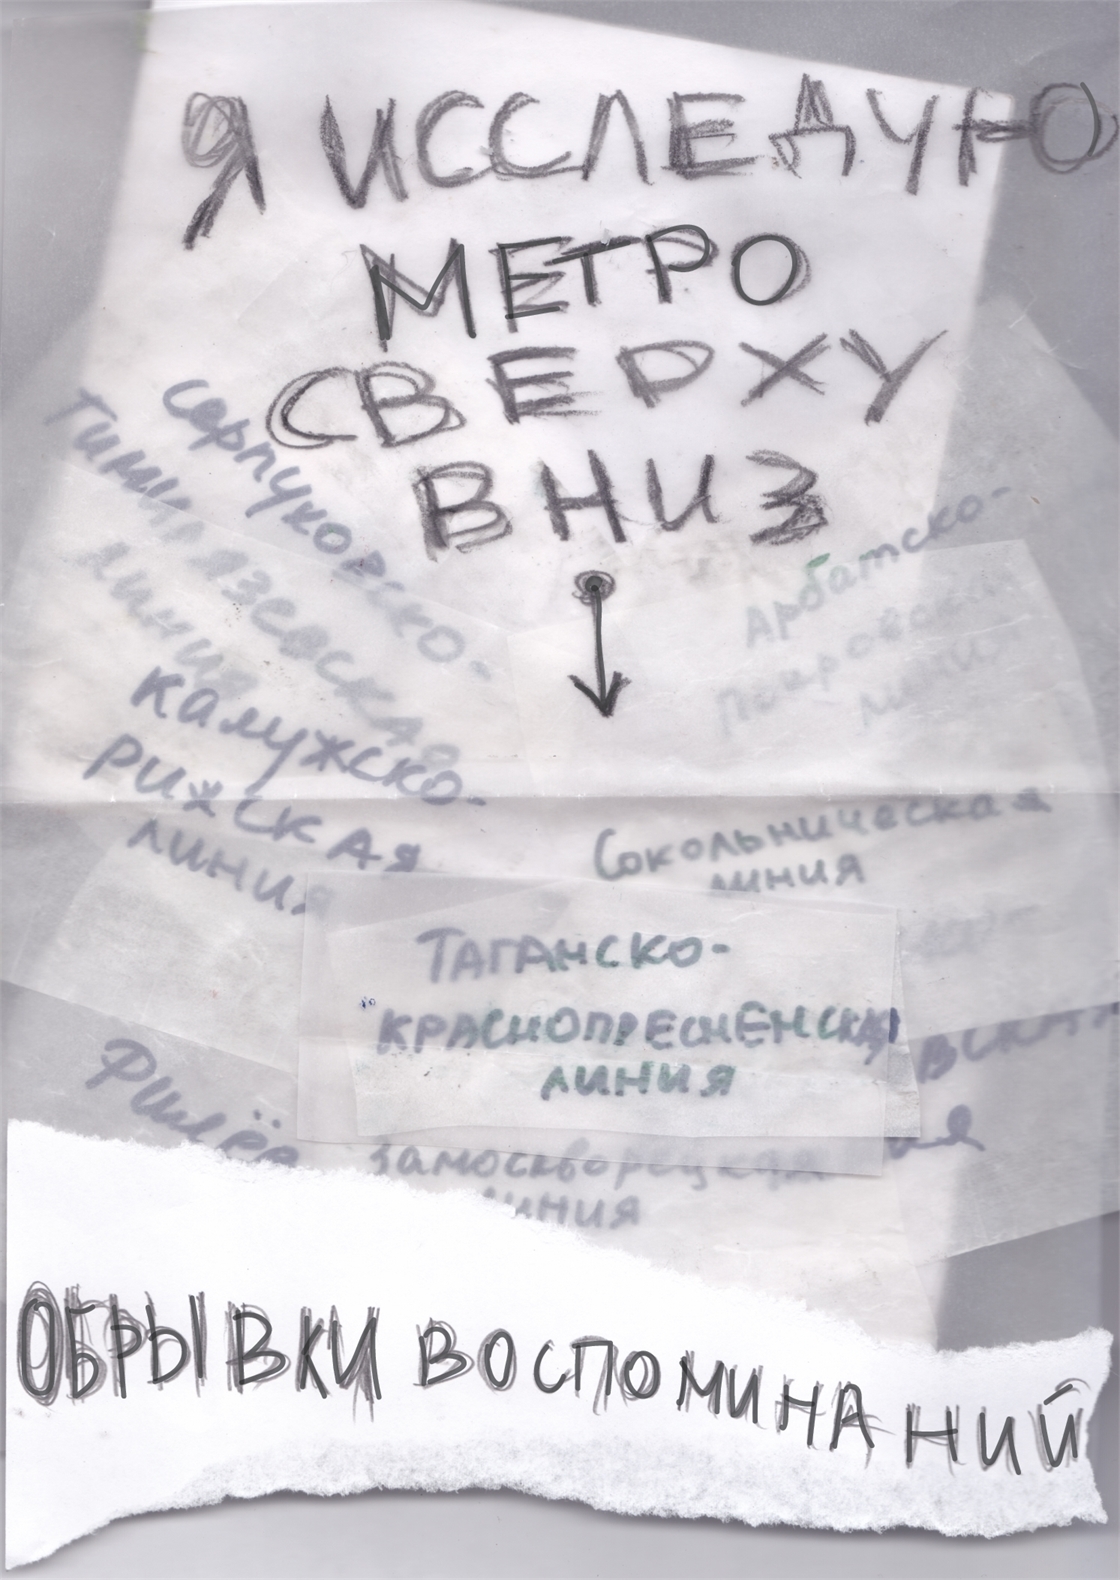 Я ИССЛЕДУЮ
МЕТРО
СВЕРХУ
ВНИЗ
Серпуховско-
Тимирязевская
линия
Арбатско-
Покровская
линия
Калужско-
Рижская
линия
Сокольническая
линия
Таганско-
Краснопресненская
линия
Филёв
Замоскворецкая
линия
ОБРЫВКИ ВОСПОМИНАНИЙ